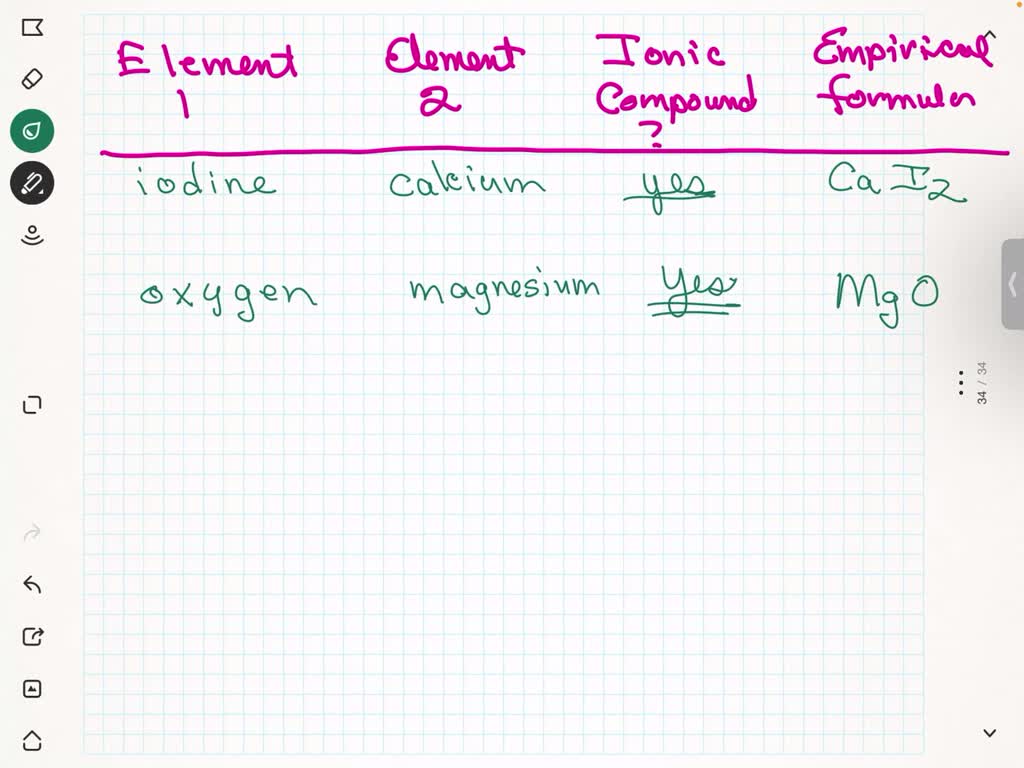 Element Element Ionic Empirical
1 2 Compound formula
?
iodine calcium yes CaI2
oxygen magnesium Yes MgO
34 / 34